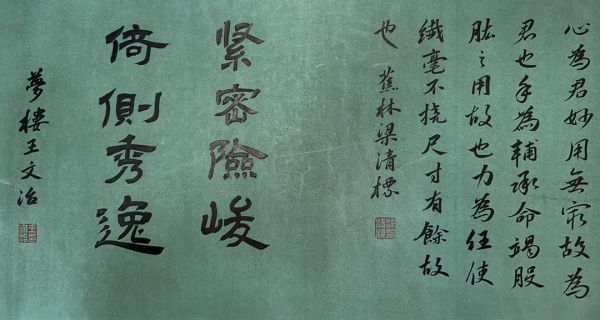 心為君妙用無窮故為
君也手為輔承命竭股
肱之用故也力為任使
纖毫不撓尺寸有餘故
也 蕉林梁清標
紧密險峻
倚側秀逸
夢樓王文治